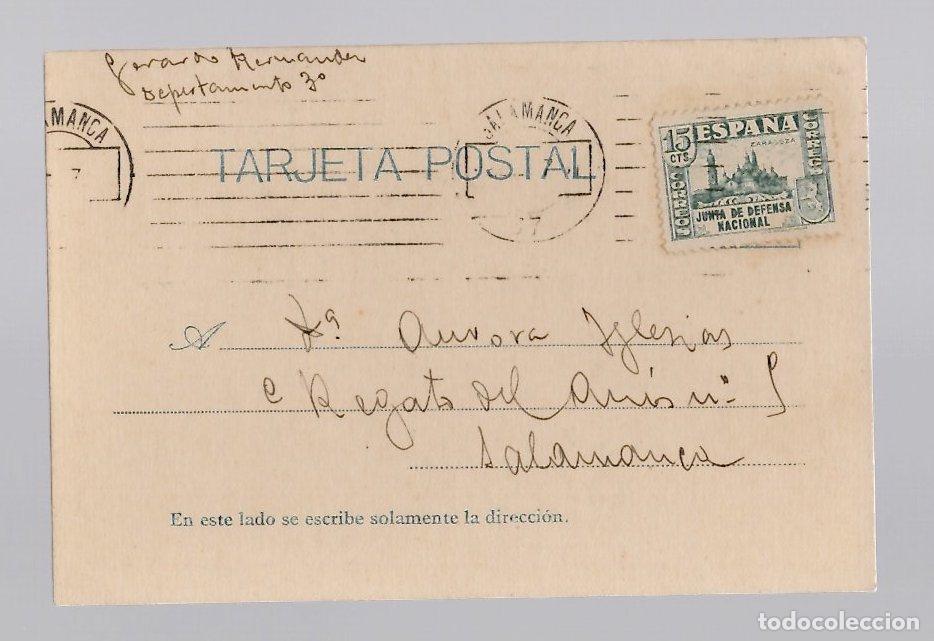 Gerardo Hernandez
Departamento 3º
SALAMANCA
7
SALAMANCA
37
TARJETA POSTAL
15 CTS
ESPAÑA
ZARAGOZA
CORREOS
CORREOS
JUNTA DE DEFENSA
NACIONAL
A Dª Aurora Iglesias
c Regato del Anís nº 5
Salamanca
En este lado se escribe solamente la dirección.
todocoleccion